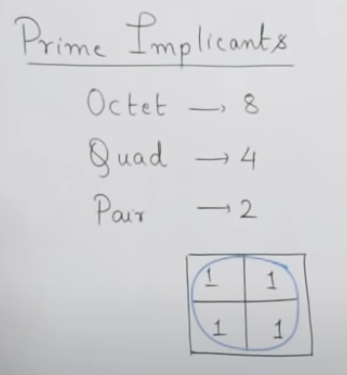 Prime Implicants
Octet → 8
Quad → 4
Pair → 2
1 1
1 1